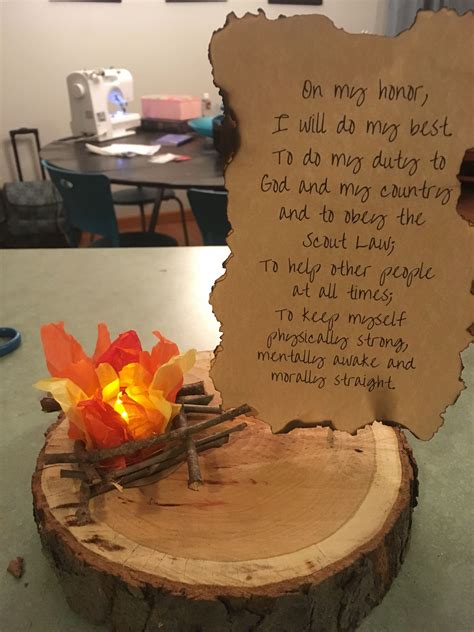 On my honor,
I will do my best
To do my duty to
God and my country
and to obey the
Scout Law;
To help other people
at all times;
To keep myself
physically strong,
mentally awake and
morally straight.